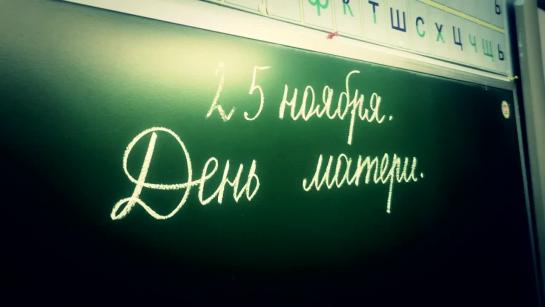 ф к т ш с х ц ч щ ь
25 ноября.
День матери.